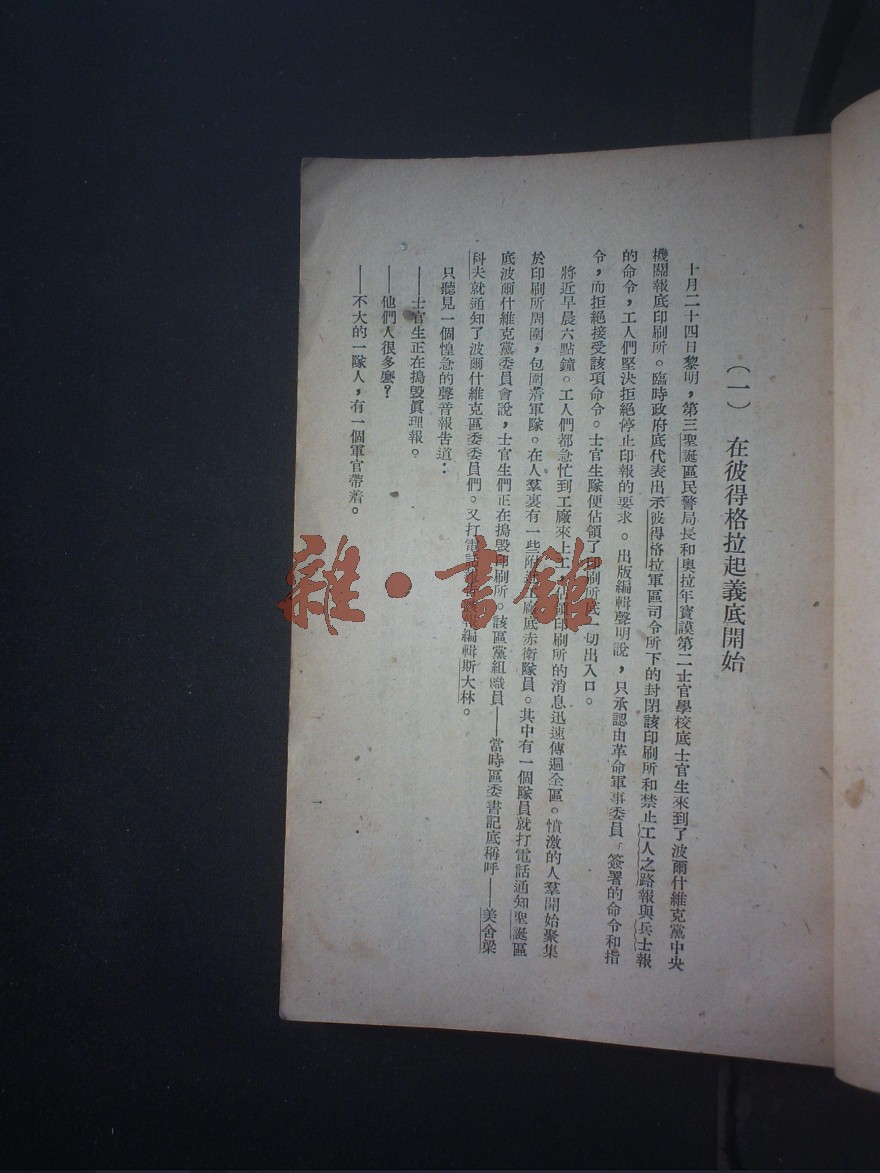 （一）　在彼得格拉起義底開始
十月二十四日黎明，第三聖誕區民警局長和奧拉年寶謨第二士官學校底士官生來到了波爾什維克黨中央
機關報底印刷所。臨時政府底代表出示彼得格拉軍區司令所下的封閉該印刷所和禁止工人之路報與兵士報
的命令，工人們堅決拒絕停止印報的要求。出版編輯聲明說，只承認由革命軍事委員 簽署的命令和指
令，而拒絕接受該項命令。士官生隊便佔領了印刷所底一切出入口。
將近早晨六點鐘。工人們都急忙到工廠來上工，佔領印刷所的消息迅速傳遍全區。憤激的人羣開始聚集
於印刷所周圍，包圍着軍隊。在人羣裏有一些附近工廠底赤衛隊員。其中有一個隊員就打電話通知聖誕區
底波爾什維克黨委員會說，士官生們正在搗毀印刷所。該區黨組織員——當時區委書記底稱呼——美舍梁
科夫就通知了波爾什維克區委委員們。又打電話 編輯斯大林。
只聽見一個惶急的聲音報告道：
——士官生正在搗毀眞理報。
——他們人很多麼？
——不大的一隊人，有一個軍官帶着。
一
雜·書館